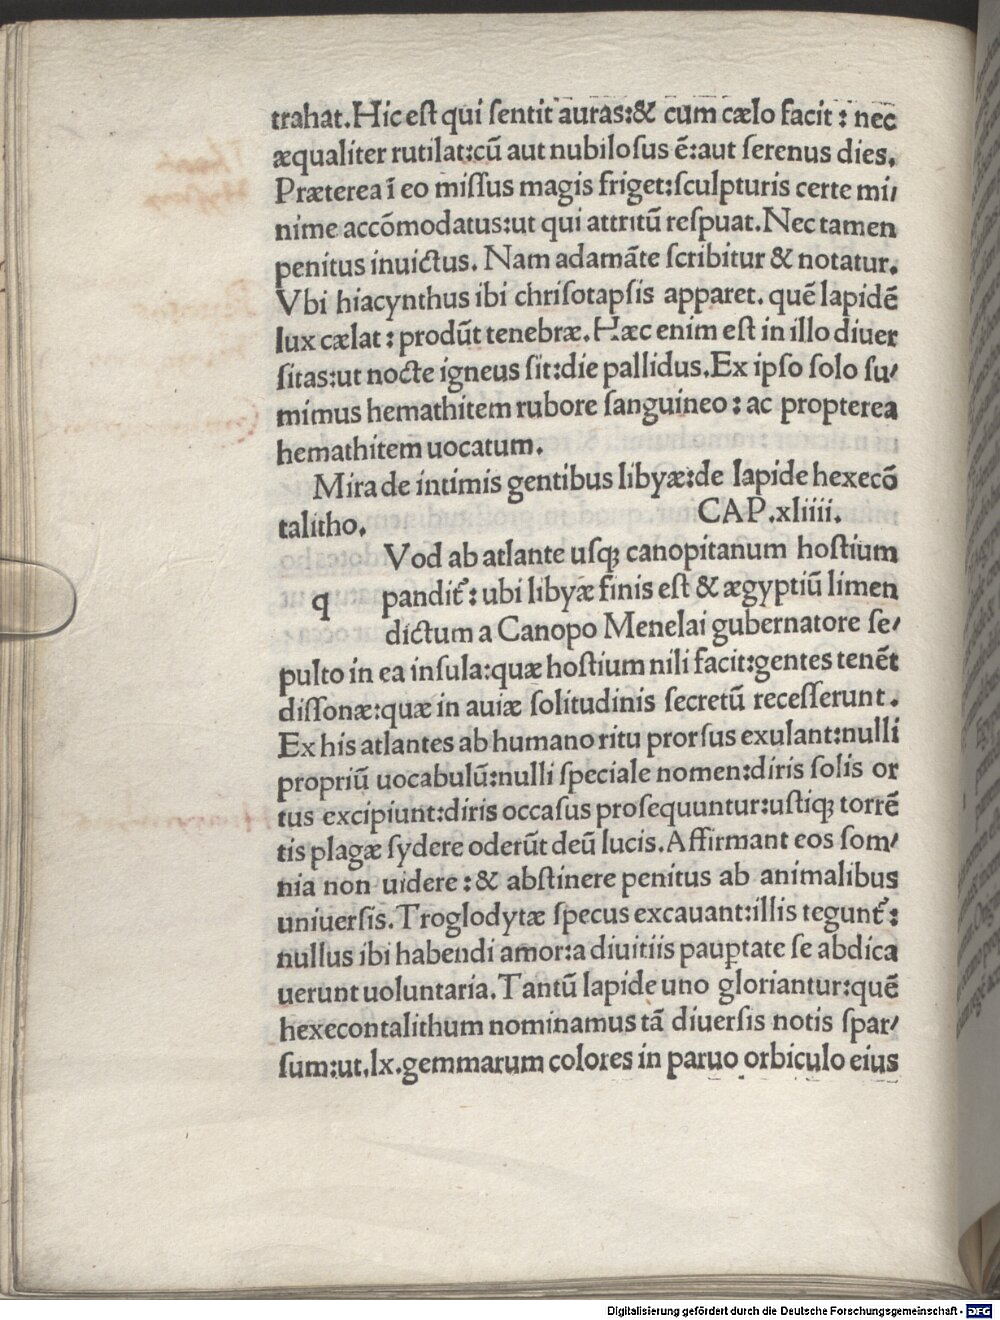 trahat.Hic eſt qui ſentit auras:& cum cælo facit : nec
æqualiter rutilat:cū aut nubiloſus ē:aut ſerenus dies.
Præterea ī eo miſſus magis friget:ſculpturis certe mi/
nime accōmodatus:ut qui attritū reſpuat.Nec tamen
penitus inuictus. Nam adamāte ſcribitur & notatur.
Vbi hiacynthus ibi chriſotapſis apparet. quē lapidē
lux cælat : produ̅t tenebræ. Hæc enim eſt in illo diuer
ſitas:ut nocte igneus ſit:die pallidus.Ex ipſo ſolo ſu/
mimus hemathitem rubore ſanguineo : ac propterea
hemathitem uocatum.
Mira de intimis gentibus libyæ:de lapide hexecō
talitho. CAP.xliiii.
Vod ab atlante uſqꝫ canopitanum hoſtium
q pandit᷑ : ubi libyæ finis eſt & ægyptiū limen
dictum a Canopo Menelai gubernatore ſe/
pulto in ea inſula:quæ hoſtium nili facit:gentes tenēt
diſſonæ:quæ in auiæ ſolitudinis ſecretū receſſerunt.
Ex his atlantes ab humano ritu prorſus exulant:nulli
propriū uocabulū:nulli ſpeciale nomen:diris ſolis or
tus excipiunt:diris occaſus proſequuntur:uſtiqꝫ torrē
tis plagæ ſydere oderūt deū lucis.Affirmant eos ſom/
nia non uidere : & abſtinere penitus ab animalibus
uniuerſis.Troglodytæ ſpecus excauant:illis tegunt᷑ :
nullus ibi habendi amor:a diuitiis pauꝑtate ſe abdica
uerunt uoluntaria.Tantū lapide uno gloriantur:quē
hexecontalithum nominamus tā diuerſis notis ſpar/
ſum:ut.lx.gemmarum colores in paruo orbiculo eius
Digitalisierung gefördert durch die Deutsche Forschungsgemeinschaft - DFG